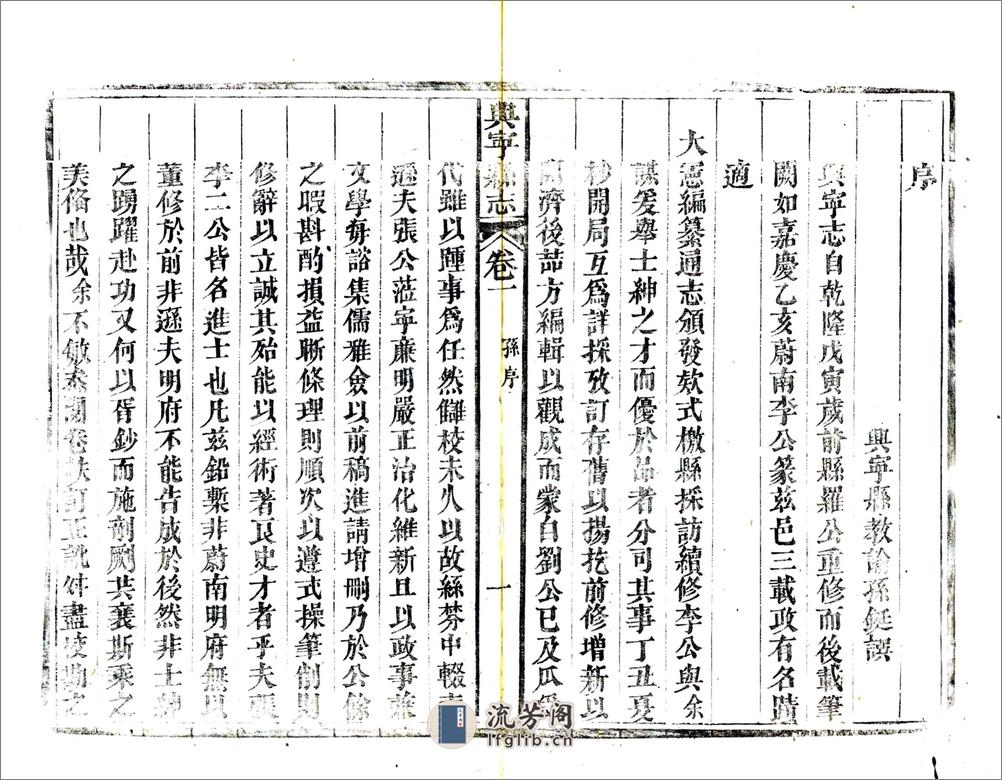 序
興寧縣教諭孫鋌譔
興寧志自乾隆戊寅歲前縣羅公重修而後載筆
闕如嘉慶乙亥蔚南李公篆茲邑三載政有名蹟
適
大憲編纂通志頒發欵式檄縣採訪續修李公與余
謀爰舉士紳之才而優於品者分司其事丁丑夏
杪開局互爲詳採攷訂存舊以揚扢前修增新以
濟後喆方編輯以觀成而蒙白劉公已及瓜
興寧縣志
卷一
孫序
一
代雖以踵事爲任然讎校未久以故絲棼中輟
遜夫張公蒞寧廉明嚴正治化維新且以政事兼
文學每谿集儒雅僉以前稿進請增刪乃於公餘
之暇斟酌損益晰條理則順次以遵式操筆削則
修辭以立誠其殆能以經術著良史才者乎夫張
李二公皆名進士也凡茲鉛槧非蔚南明府無以
董修於前非遜夫明府不能告成於後然非士紳
之踴躍赴功又何以胥鈔而施剞劂共襄斯乘之
美俻也哉余不敏忝閱卷帙訂正訛舛盡校勘之
流芳阁
lfglib.cn